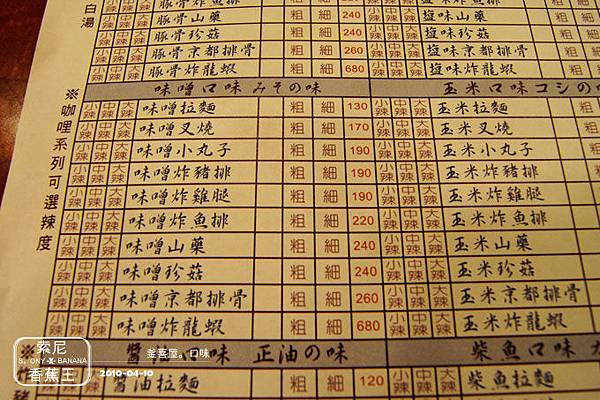 白湯
小辣 中辣 大辣 豚骨炸魚排 粗 細
小辣 中辣 大辣 豚骨山藥 粗 細 240 小辣 中辣 大辣 塩味山藥 粗
小辣 中辣 大辣 豚骨珍菇 粗 細 240 小辣 中辣 大辣 塩味珍菇 粗
小辣 中辣 大辣 豚骨京都排骨 粗 細 260 小辣 中辣 大辣 塩味京都排骨 粗
小辣 中辣 大辣 豚骨炸龍蝦 粗 細 680 小辣 中辣 大辣 塩味炸龍蝦 粗
味噌口味 みその味 玉米口味 コシの
※咖哩系列可選辣度
小辣 中辣 大辣 味噌拉麵 粗 細 130 小辣 中辣 大辣 玉米拉麵 粗
小辣 中辣 大辣 味噌叉燒 粗 細 170 小辣 中辣 大辣 玉米叉燒 粗
小辣 中辣 大辣 味噌小丸子 粗 細 190 小辣 中辣 大辣 玉米小丸子 粗
小辣 中辣 大辣 味噌炸豬排 粗 細 190 小辣 中辣 大辣 玉米炸豬排 粗
小辣 中辣 大辣 味噌炸雞腿 粗 細 190 小辣 中辣 大辣 玉米炸雞腿 粗
小辣 中辣 大辣 味噌炸魚排 粗 細 220 小辣 中辣 大辣 玉米炸魚排 粗
小辣 中辣 大辣 味噌山藥 粗 細 240 小辣 中辣 大辣 玉米山藥 粗
小辣 中辣 大辣 味噌珍菇 粗 細 240 小辣 中辣 大辣 玉米珍菇 粗
小辣 中辣 大辣 味噌京都排骨 粗 細 260 小辣 中辣 大辣 玉米京都排骨 粗
小辣 中辣 大辣 味噌炸龍蝦 粗 細 680 小辣 中辣 大辣 玉米炸龍蝦 粗
醬油口味 正油の味 柴魚口味
醬油拉麵 粗 細 120 小辣 中辣 大辣 柴魚拉麵 粗
※炸豬
索尼
SONY-X-BANANA
香蕉王
釜喜屋。口味
2010-04-10